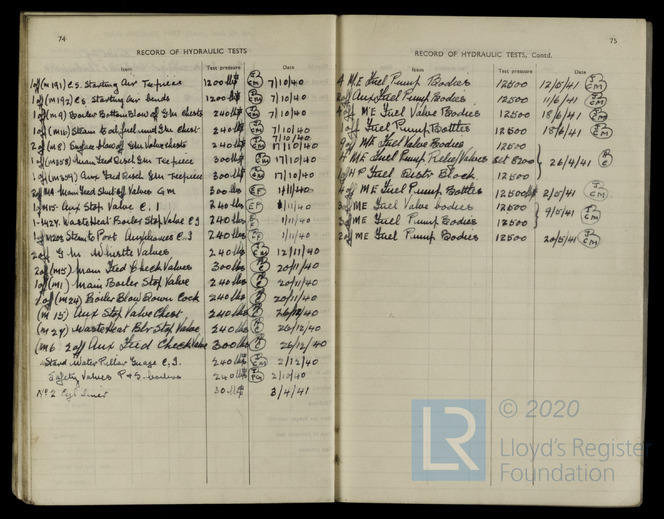 74
RECORD OF HYDRAULIC TESTS
Item Test pressure Date
1 off (M191) C.S. Starting Air Teepiece 1200 lbs 7/10/40
1 off (M192) C.S. Starting Air bends 1200 lbs 7/10/40
1 off (M9) Boiler Bottom Blow off G.M. Chests 240 lbs 7/10/40
1 off (M16) Steam to oil fuel unit G.M. Chest 240 lbs 7/10/40
2 off (M8) Surface blow off G.M. Valve chests 240 lbs 17/10/40 7/10/40
1 off (M358) Main Feed Discl. G.M. Teepiece 300 lbs 17/10/40
1 off (M359) Aux Feed Disch. G.M. Teepiece 300 lbs 17/10/40
2 off M4 Main Feed Shut off Valves G.M 300 lbs EF 1/11/40
1 off M15 Aux Stop Valve C.I 240 lbs EF 1/11/40
1-M24. Waste Heat Boiler Stop Valve C.I 240 lbs 1/11/40
1 off M208 Steam to Port Auxiliaries C.I 240 lbs EF 1/11/40
2 off G.M Whistle Valves 240 lbs 12/11/40
2 off (M5) Main Feed Check Valves 300 lbs 20/11/40
1 off (M1) Main Boiler Stop Valve 240 lbs 20/11/40
1 off (M24) Boiler Blow Down Cock 240 lbs 20/11/40
(M 15) Aux Stop Valve Chest, 240 lbs 26/12/40
(M 24) Waste Heat Blr Stop Valve 240 lbs 26/12/40
(M6 2 off Aux Feed Check Valve 300 lbs 26/12/40
Stand Water Pillar Guage C.I. 240 lbs 2/12/40
Safety Valves P & S. boilers 240 lbs 2/10/40
No 2 Cyl Liner 30 lbs 3/4/41
75
RECORD OF HYDRAULIC TESTS, Contd.
Item Test pressure Date
4 M.E Fuel Pump Bodies 12500 12/5/41
2 off Aux Fuel Pump Bodies 12500 11/6/41
4 off M.E Fuel Valve Bodies 12500 18/6/41
1 off Fuel Pump Bottles 12500 18/6/41
9 off M.E Fuel Valve Bodies 12500
4 M.E Fuel Pump Relief Valves set 8200 26/4/41
1 off H.P Fuel Distr Block 12500
4 off M.E Fuel Pump Bottles 12500 2/5/41
3 off M.E Fuel Valve bodies 12500
3 off M.E Fuel Pump Bodies 12500 9/5/41
2 off M.E Fuel Pump Bodies 12500 20/5/41
LR
© 2020
Lloyd's Register
Foundation